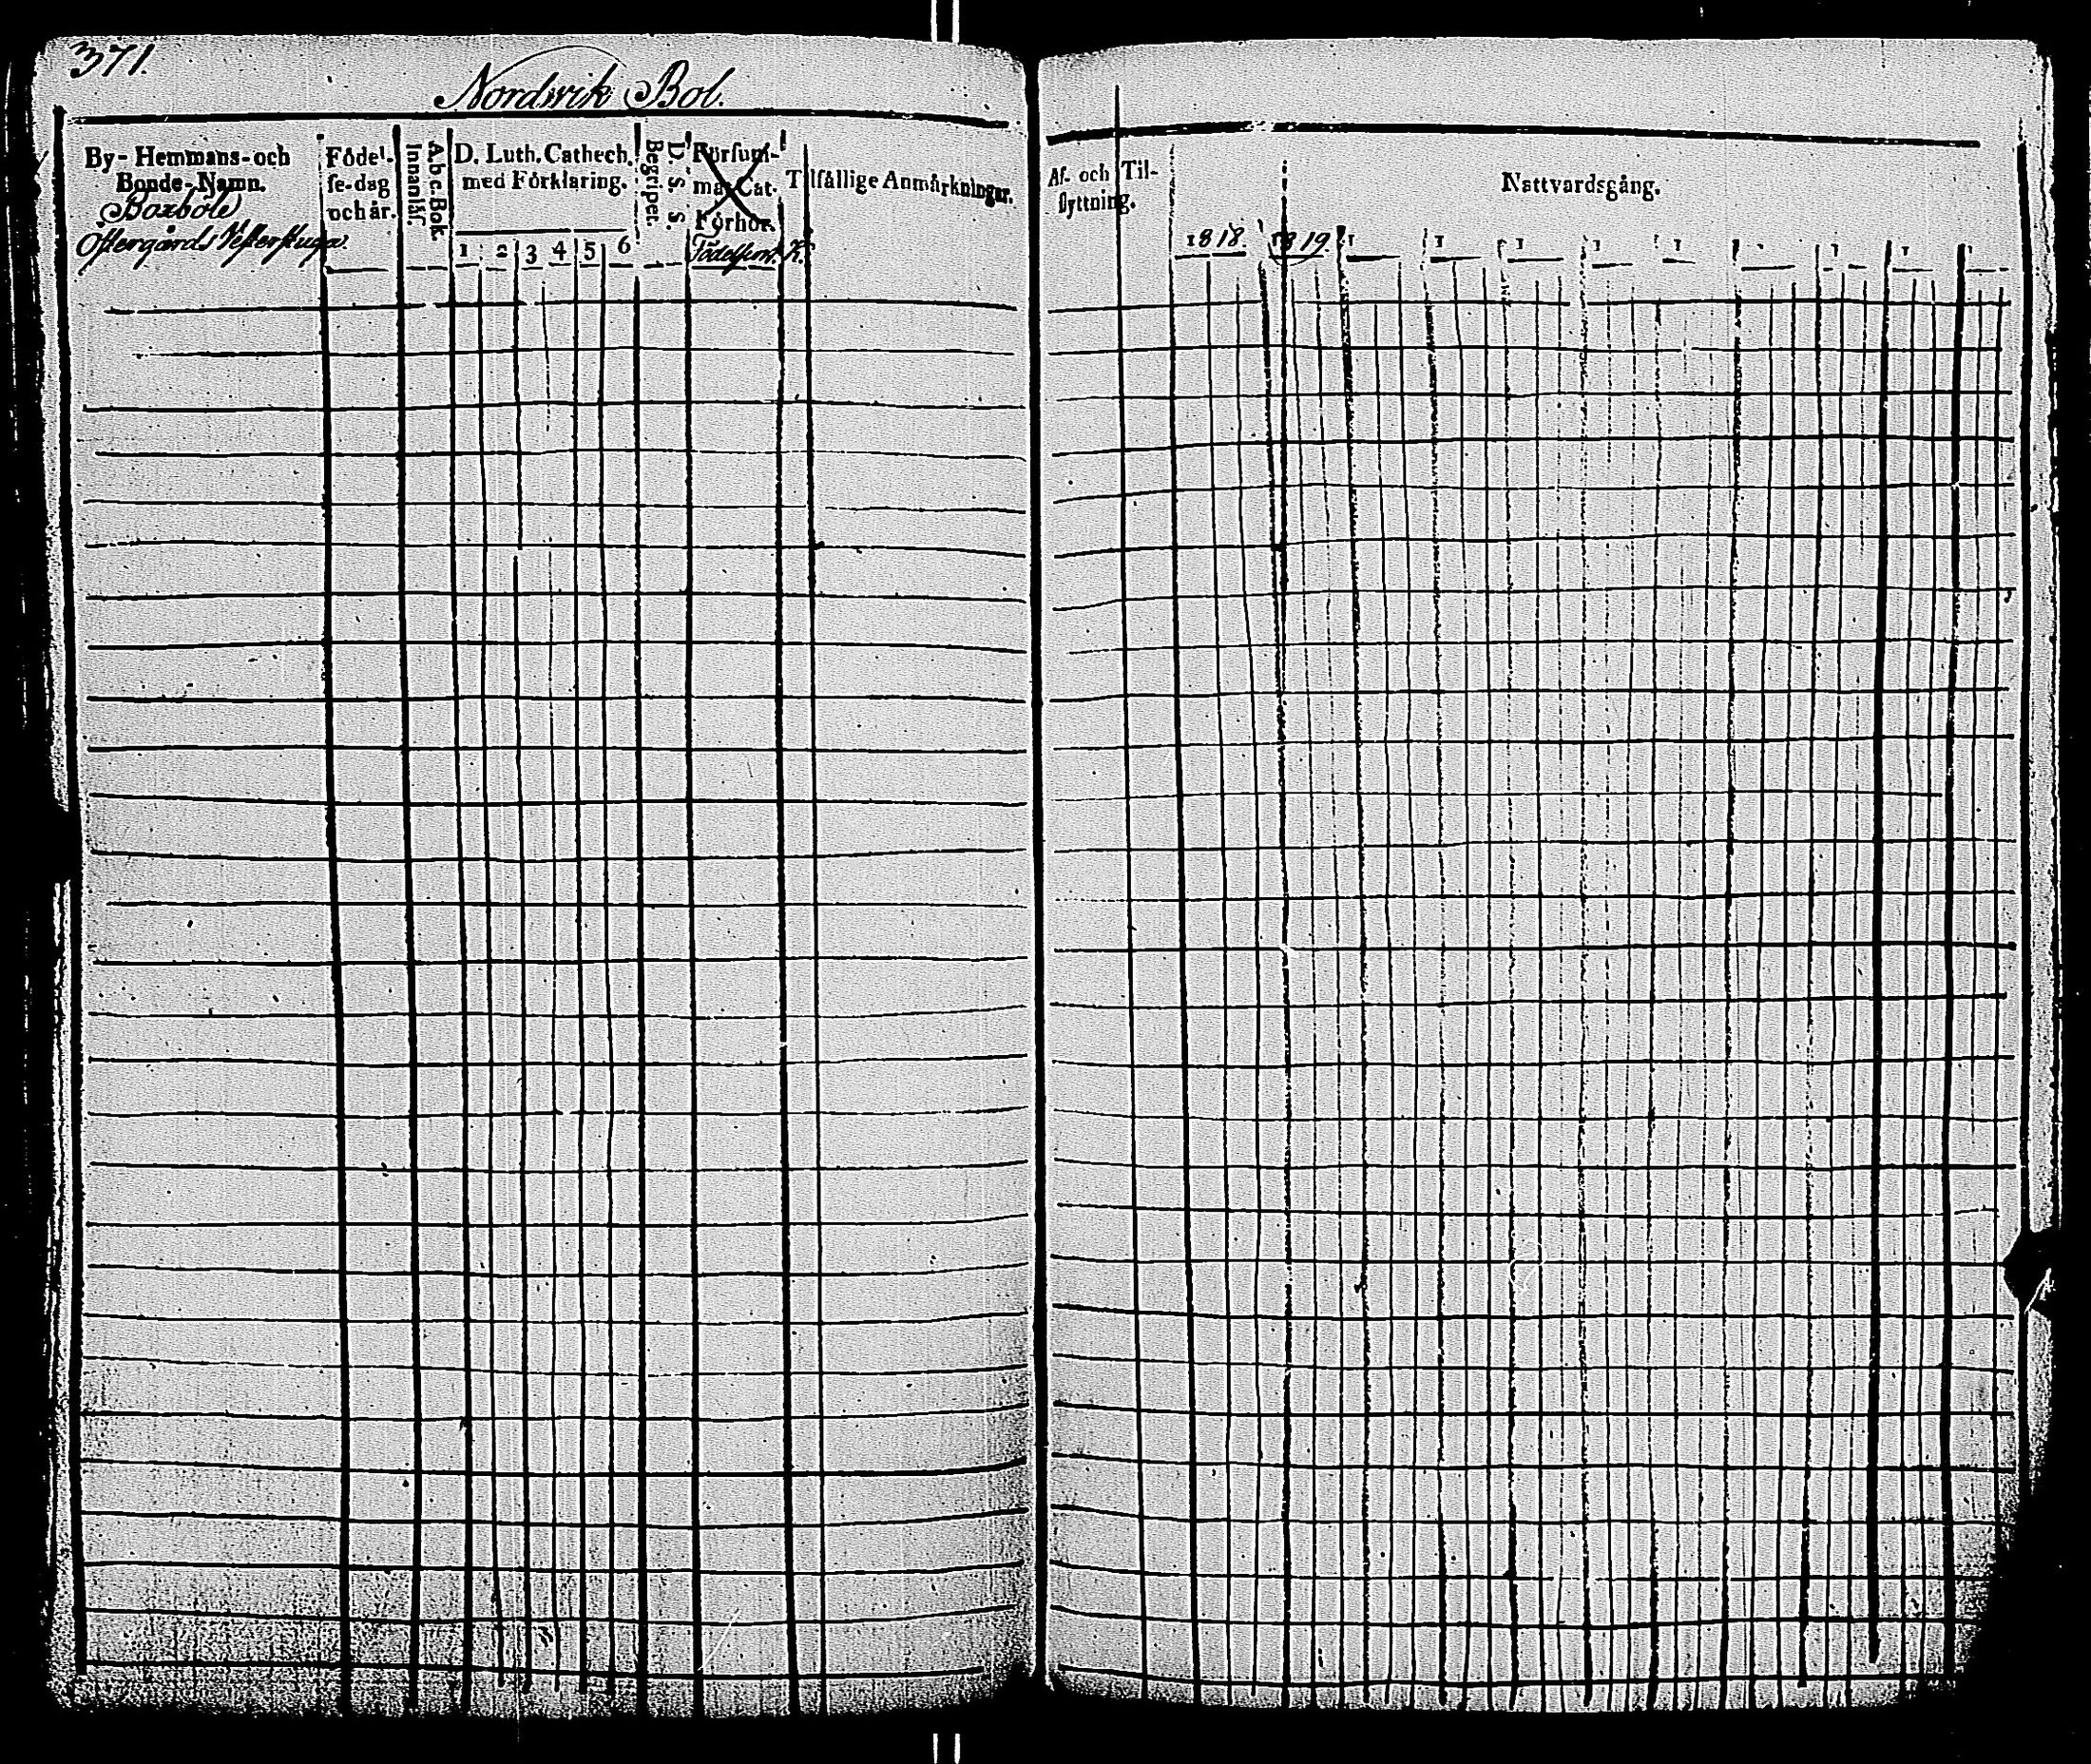 371.
Nordwik Bol.
By- Hemmans- och
Bonde-Namn.
Boxböle
Östergårds Vesterstuga
Födel-
se-dag
och år.
A.b.c.Bok.
Innanläs.
D. Luth. Cathech.
med Förklaring.
1 2 3 4 5 6
D. S. S.
Begripet.
Försum-
ma. Cat.
Förhör.
Födelseort.
K.
Tilfällige Anmärkningar.
Af- och Til-
flyttning.
Nattvardsgång.
1818. 1819. 1 1 1 1 1 1 1 1